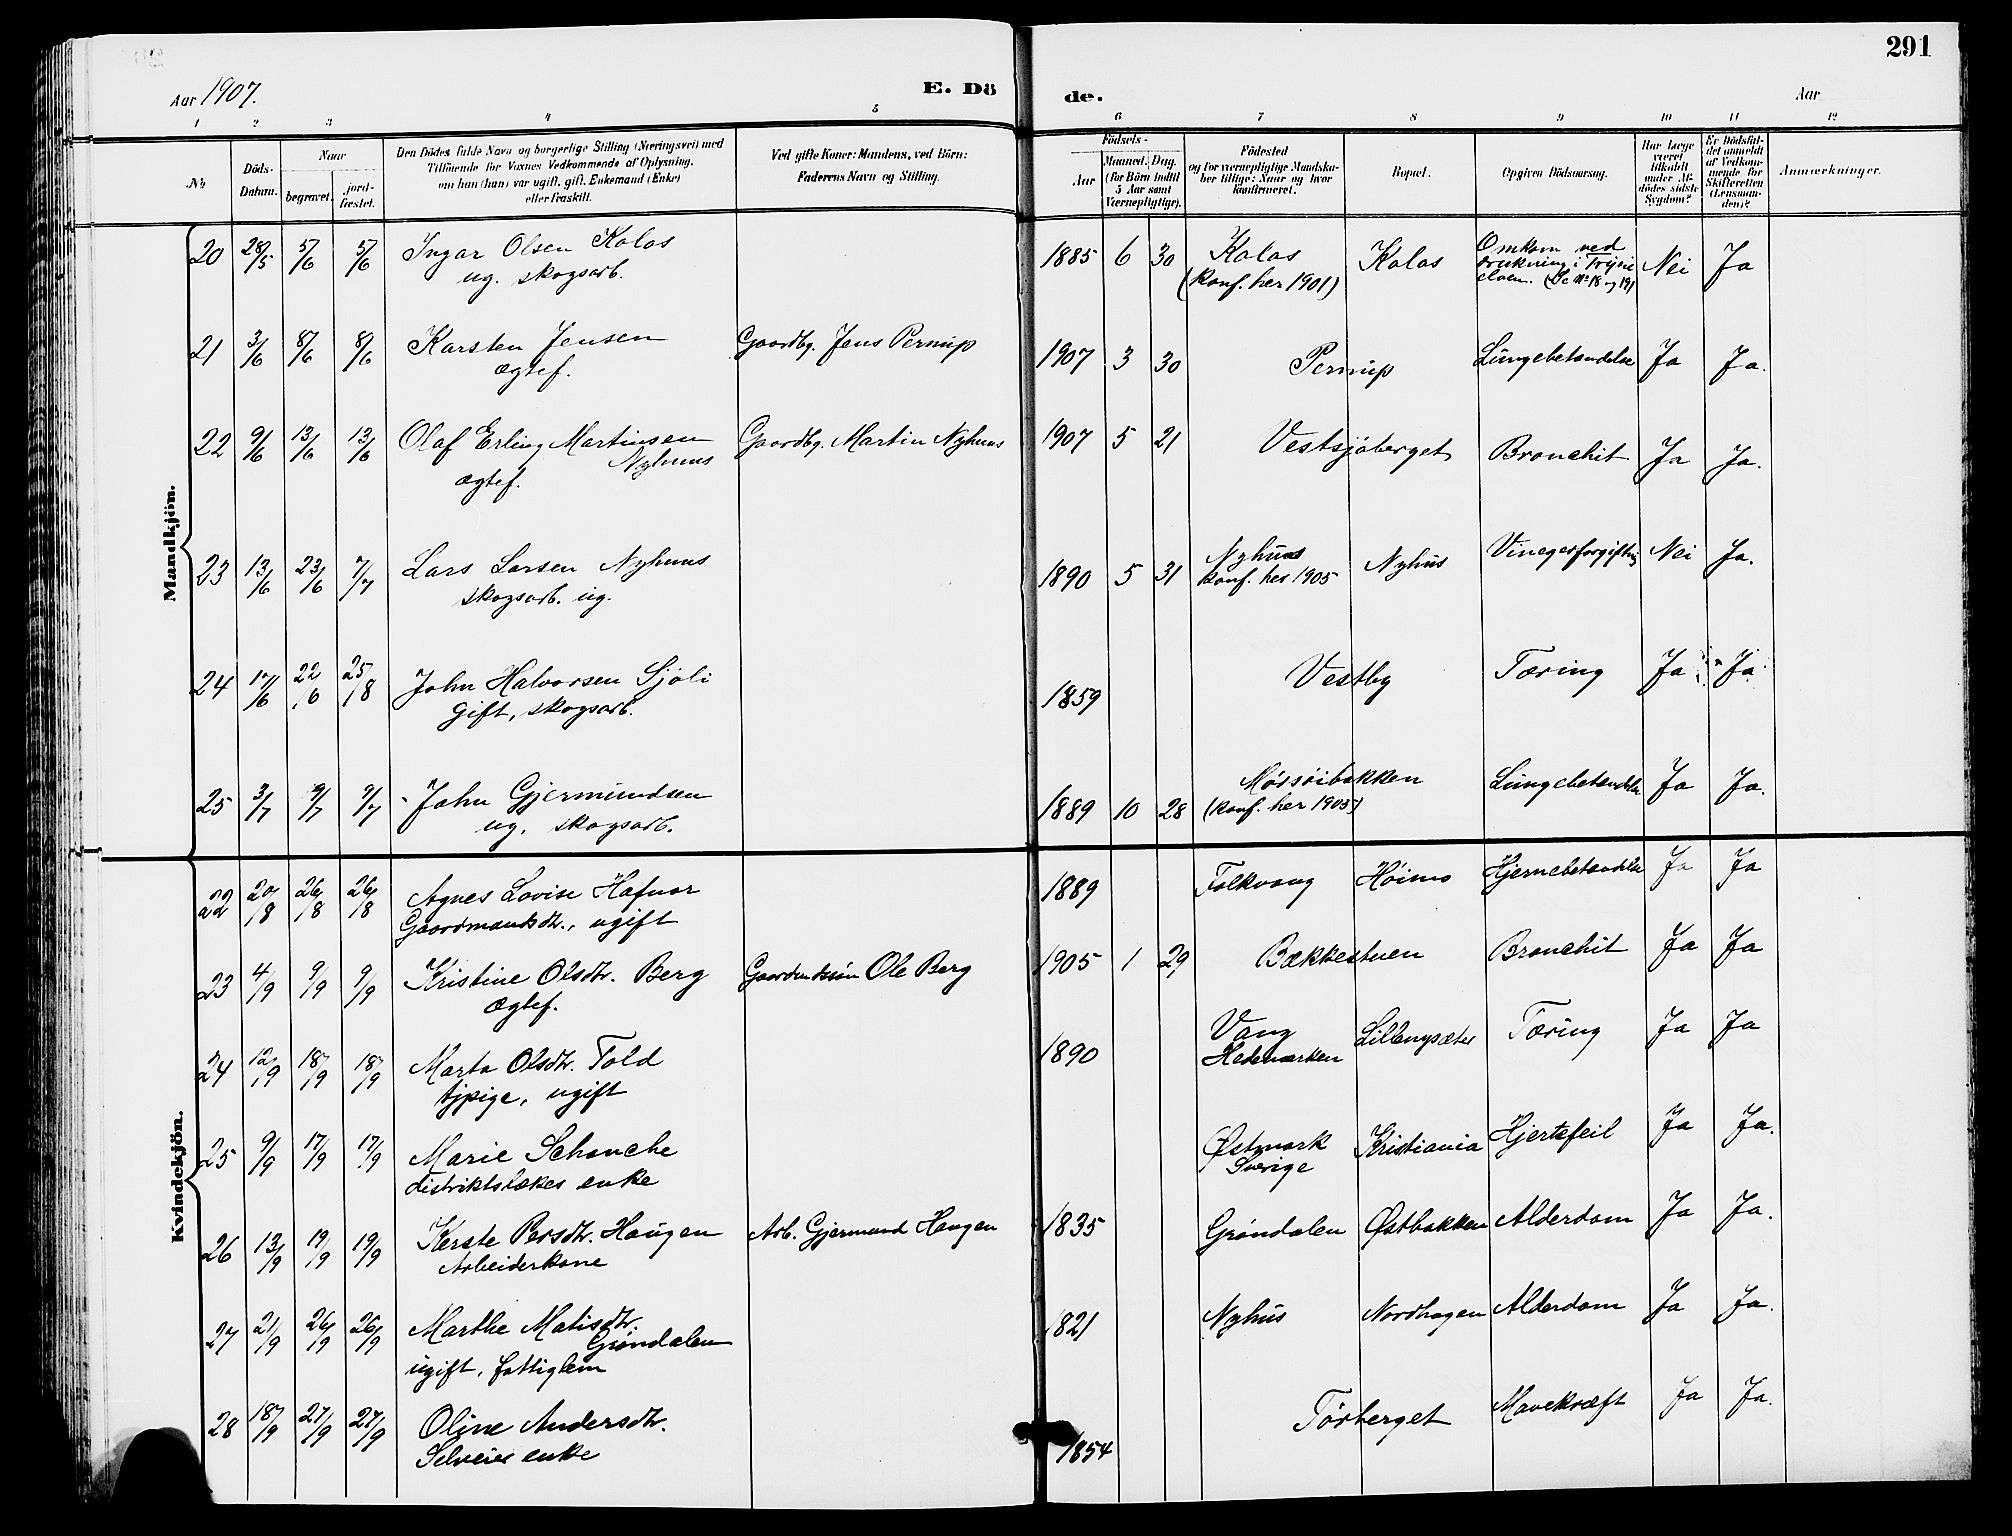 291
Aar 1907.
E. Dö
de.
Aar
1 2 3 4 5 6 7 8 9 10 11 12
No
Döds-
Datum.
Naar
begravet.
jord-
fæstet.
Den Dödes fulde Navn og borgerlige Stilling (Næringsvei) med
Tilföiende for Voxnes Vedkommende af Oplysning,
om han (hun) var ugift, gift, Enkemand (Enke)
eller fraskilt.
Ved gifte Koner: Mandens, ved Börn:
Faderens Navn og Stilling.
Födsels-
Aar
Maaned. Dag.
(for Börn indtil
5 Aar samt
Værnepligtige).
Födested
og for værnepligtige Mandska-
ber tillige: Naar og hvor
konfirmeret.
Bopæl.
Opgiven Dödsaarsag.
Har Læge
været
tilkaldt
under Af-
dödes sidste
Sygdom?
Er Dödsfal-
det anmeldt
af Vedkom-
mende for
Skifteretten
(Lensman-
den)?
Anmærkninger.
Mandkjön.
20 28/5 5/6 5/6 Ingar Olsen Kolos 1885 6 30 Kolos Kolos Omkom ved Nei Ja
ug. skogsarb. (konf. her 1901) drukning i Trysil
elven. (Se No 18 og 19)
21 3/6 8/6 8/6 Karsten Jensen Gaardbg. Jens Pernup 1907 3 30 Pernup Lungebetændelse Ja Ja.
ægtef.
22 9/6 13/6 13/6 Olaf Erling Martinsen Gaardbg. Martin Nyhuus 1907 5 21 Vestsjøberget Bronchit Ja Ja.
Nyhuus
ægtef.
23 13/6 23/6 7/7 Lars Larsen Nyhuus 1890 5 31 Nyhuus Nyhus Vinegerforgiftnig Nei Ja.
skogsarb. ug. konf. her 1905
24 17/6 22/6 25/8 John Halvorsen Sjøli 1859 Vestby Tæring Ja Ja
gift, skogsarb.
25 3/7 9/7 9/7 John Gjermundsen 1889 10 28 Møssøibakken Lungebetændelse Ja Ja.
ug. skogsarb. (konf. her 1905)
Kvindekjön.
22 20/8 26/8 26/8 Agnes Lovise Hafnor 1889 Folkvang Høimo Hjernebetændelse Ja Ja
Gaardmandsdtr., ugift
23 4/9 9/9 9/9 Kristine Olsdtr. Berg Gaardmdssøn Ole Berg 1905 1 29 Bækkestuen Bronchit Ja Ja
Ægtef.
24 12/9 18/9 18/9 Marta Olsdtr. Told 1890 Vang Lillenysæter Tæring Ja Ja
tjpige, ugift Hedemarken
25 9/9 17/9 17/9 Marie Schanche Østmark Kristiania Hjertefeil Ja Ja.
distriktslækes enke Sverige
26 13/9 19/9 19/9 Kerste Persdtr. Haugen Arb. Gjermund Haugen 1835 Grøndalen Østbakken Alderdom Ja Ja.
Arbeiderkone
27 21/9 26/9 26/9 Marthe Matisdtr. 1821 Nyhus Nordhagen Alderdom Ja Ja.
Grøndalen
ugift, fattiglem
28 18/9 27/9 27/9 Oline Andersdtr. 1854 Tørberget Mavekræft Ja Ja.
Selveier enke